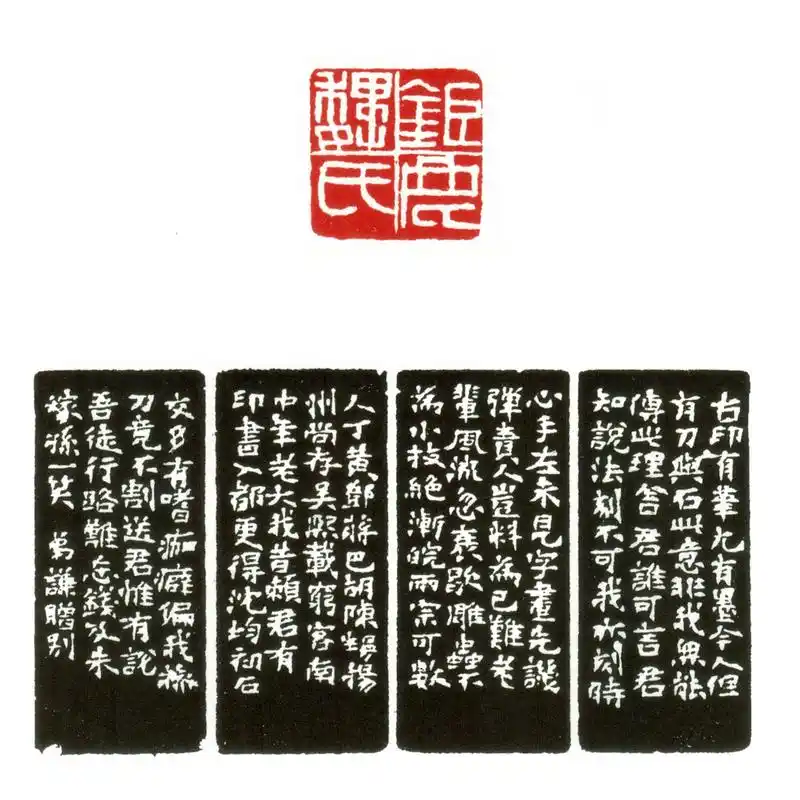 鉅鹿
魏氏
古印有筆尤有墨今人但
有刀與石此意非我無能
傳此理答君誰可言君
知說法刻不可我亦刻時
心手左未見字畫先譏
彈責人豈料為己難老
輩風流忽衰歇雕蟲
為小技絕浙皖兩宗可數
人丁黃鄧蔣巴胡陳揚
州尚存吳熙載窮客南
中年老大我昔賴君有
印書入都更得沈均初石
交多有嗜痂癖偏我操
刀竟不割送君惟有說
吾徒行路難忘錢及朱
稼孫一笑 謙贈別